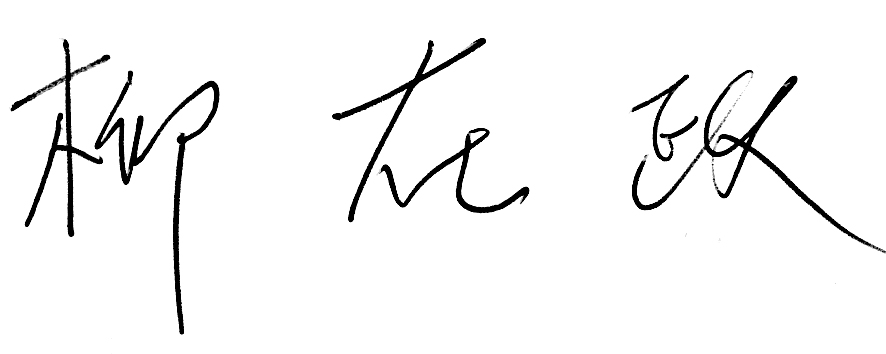 柳在政